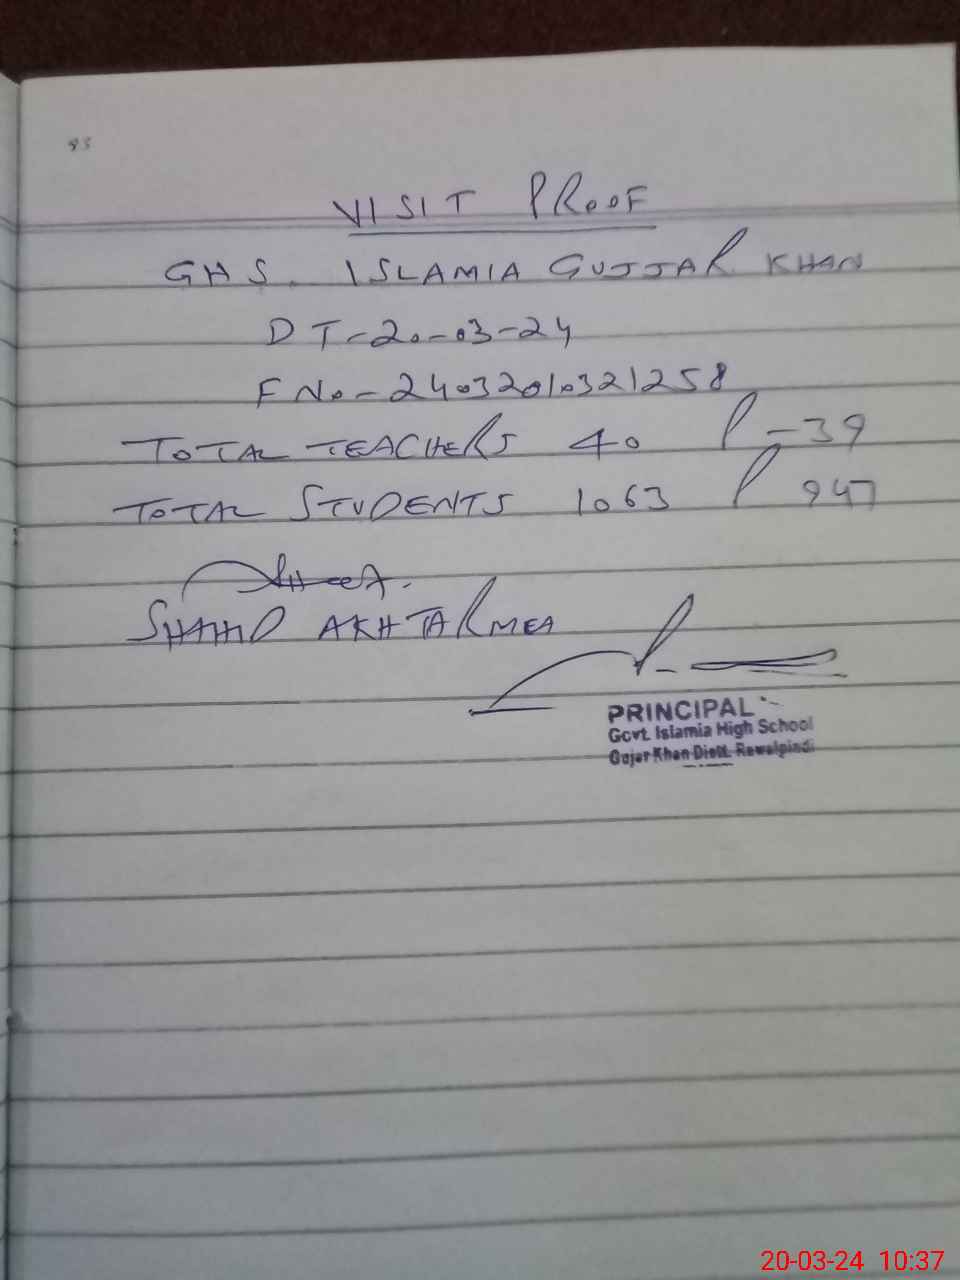 93
VISIT PROOF
GHS. ISLAMIA GUJJAR KHAN
DT-20-03-24
F No-24032010321258
TOTAL TEACHERS 40 P-39
TOTAL STUDENTS 1063 P 947
SHAHID AKHTAR MEA
PRINCIPAL
Govt. Islamia High School
Gujar Khan Distt. Rawalpindi
20-03-24 10:37